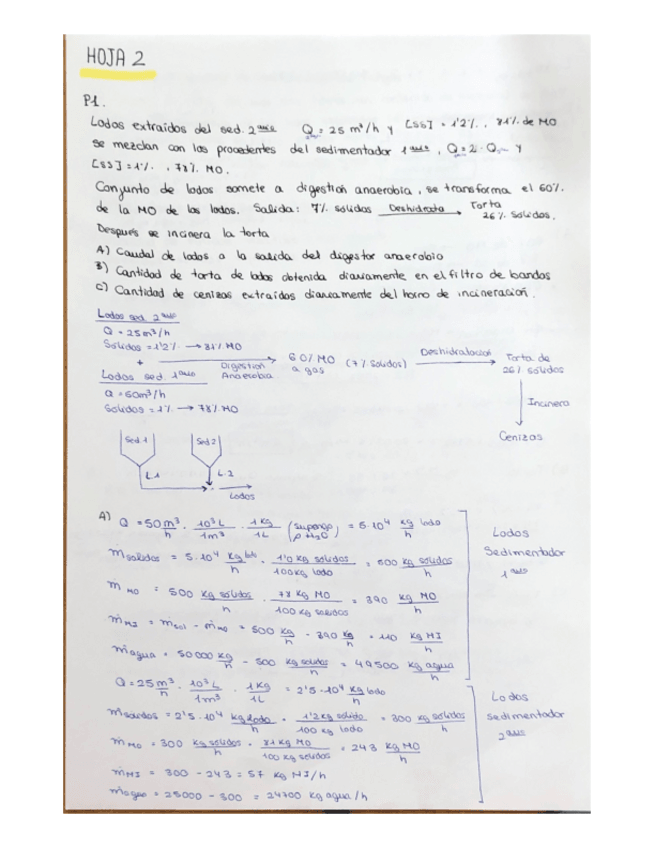 HOJA 2
P1.
Lodos extraídos del sed. 2ario Q = 25 m³/h y [SS] = 1'2%, 81% de MO
se mezclan con los procedentes del sedimentador 1ario, Q = 2·Q y
[SS] = 1%, 78% MO.
Conjunto de lodos somete a digestión anaerobia, se transforma el 60%
de la MO de los lodos. Salida: 7% solidos Deshidrata Torta
26% solidos.
Después se incinera la torta
A) Caudal de lodos a la salida del digestor anaerobio
B) Cantidad de torta de lodos obtenida diariamente en el filtro de bandas
C) Cantidad de cenizas extraídas diariamente del horno de incineración.
Lodos sed. 2ario
Q = 25m³/h
Solidos = 1'2% → 81% MO
+ Digestion Anaerobia 60% MO a gas (7% solidos) Deshidratación Torta de 26% solidos
Lodos sed. 1ario
Q = 50m³/h
Solidos = 1% → 78% MO
Incinera
Cenizas
Sed.1 Sed.2
L.1 L.2
Lodos
A) Q = 50 m³/h · 10³ L/1m³ · 1 Kg/1L (supongo ρ H₂O) = 5·10⁴ kg lodo/h
ṁ solidos = 5·10⁴ kg lodo/h · 1'0 kg solidos/100kg lodo = 500 kg solidos/h
ṁ MO = 500 kg solidos/h · 78 kg MO/100 kg solidos = 390 kg MO/h
ṁ MI = ṁ sol - ṁ MO = 500 kg/h - 390 kg/h = 110 kg MI/h
ṁ agua = 50000 kg/h - 500 kg solidos/h = 49500 kg agua/h
Lodos
Sedimentador
1ario
Q = 25 m³/h · 10³ L/1m³ · 1 Kg/1L = 2'5·10⁴ kg lodo/h
ṁ solidos = 2'5·10⁴ kg lodo/h · 1'2 kg solido/100 kg lodo = 300 kg solidos/h
ṁ MO = 300 kg solidos/h · 81 kg MO/100 kg solidos = 243 kg MO/h
ṁ MI = 300 - 243 = 57 kg MI/h
ṁ agua = 25000 - 300 = 24700 kg agua/h
Lodos
Sedimentador
2ario